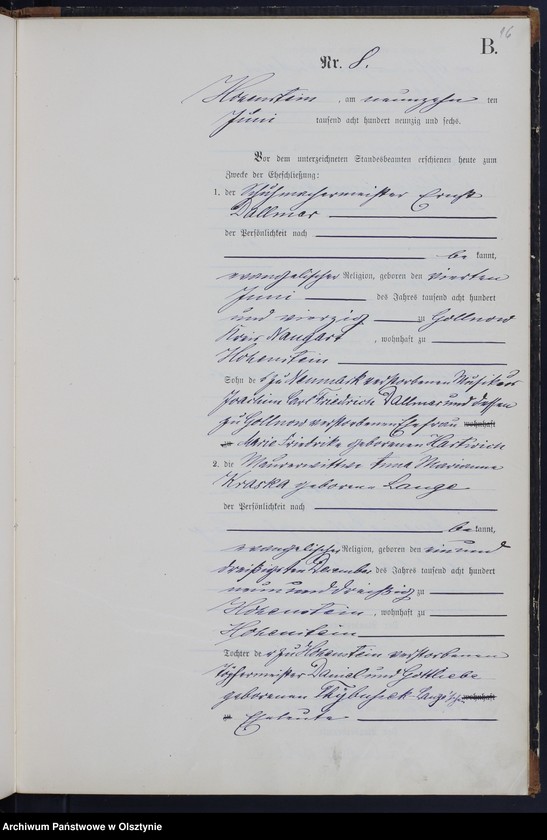 16
B.
Nr. 8.
Hohenstein, am neunzehn ten
Juni tausend acht hundert neunzig und sechs.
Vor dem unterzeichneten Standesbeamten erschienen heute zum
Zwecke der Eheschließung:
1. der Schuhmachermeister Ernst
Dallmar
der Persönlichkeit nach
be kannt,
evangelischer Religion, geboren den vierten
Juni des Jahres tausend acht hundert
und vierzig zu Gollnow
Kreis Naugart, wohnhaft zu
Hohenstein
Sohn des zu Neumark verstorbenen Musikus
Joachim Carl Friedrich Dallmar und dessen
zu Gollnow verstorbenen Ehefrau wohnhaft
zu Friedrike geborenen Hartwich
2. die Maurerwittwe Anna Marianne
Kraska geborene Lange
der Persönlichkeit nach
be kannt,
evangelischer Religion, geboren den einund
dreißigsten Dezember des Jahres tausend acht hundert
neununddreißig zu
Hohenstein, wohnhaft zu
Hohenstein
Tochter der zu Hohenstein verstorbenen
Töpfermeister Daniel und Gottliebe
geborenen Lange'schen wohnhaft
zu Eheleute
Archiwum Państwowe w Olsztynie